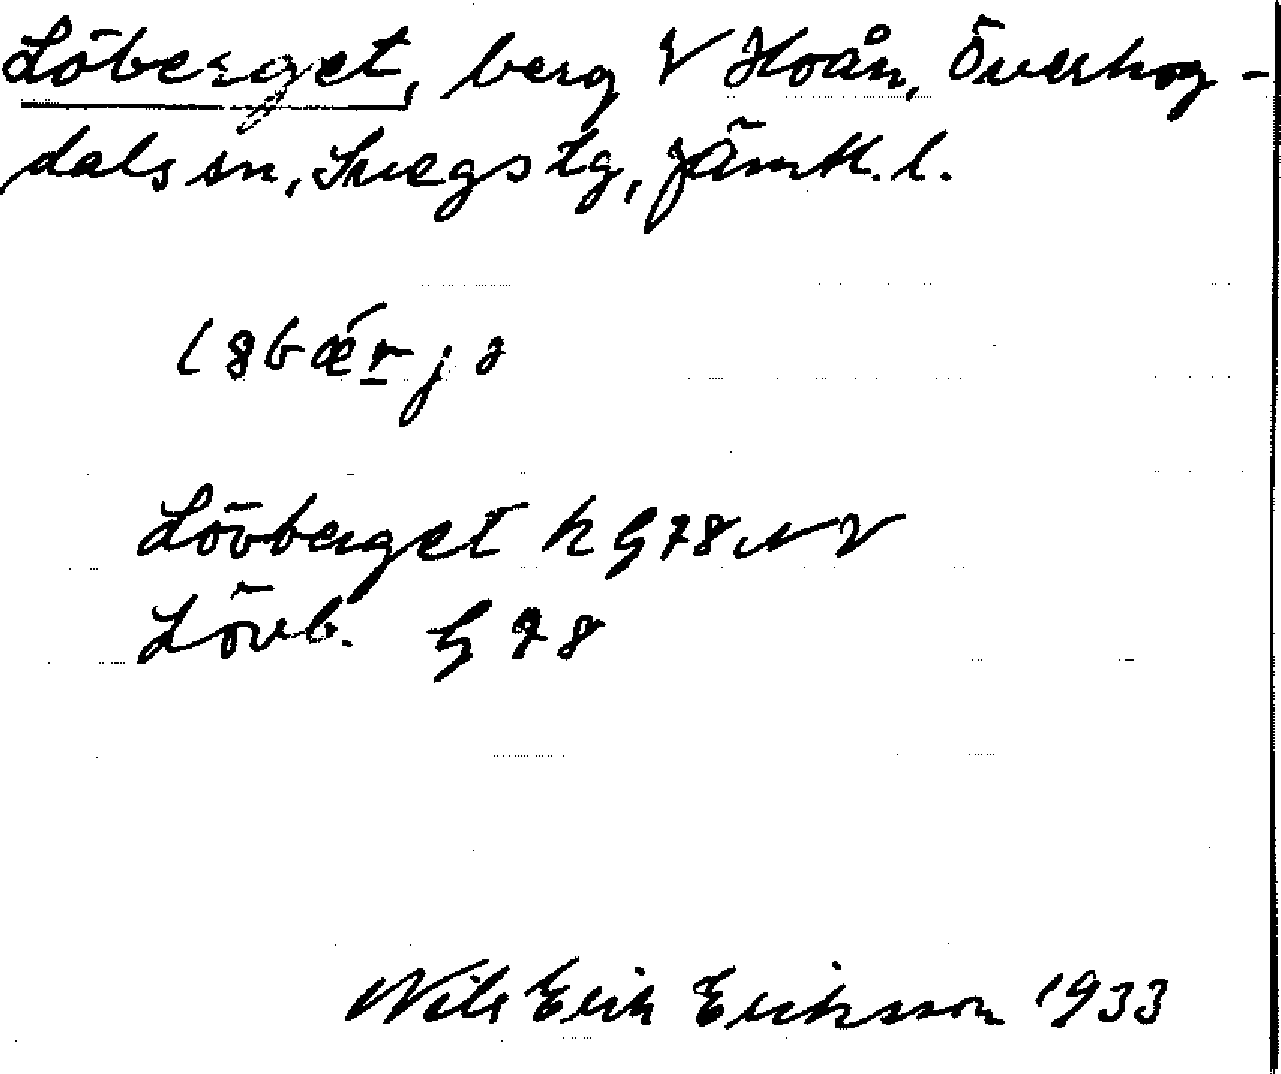 Löberget, berg V Hoån, Överhog-
dals sn, Svegs tg, Jämtl. l.
Lövberget k G 78 NV
Lövb. G 78
Nils Erik Eriksson 1933